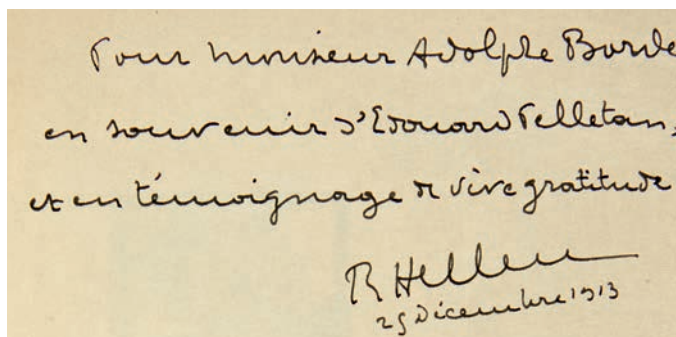 Pour monsieur Adolphe Borde
en souvenir d'Edouard Pelletan,
et en témoignage de vive gratitude
R Helleu
25 Décembre 1913